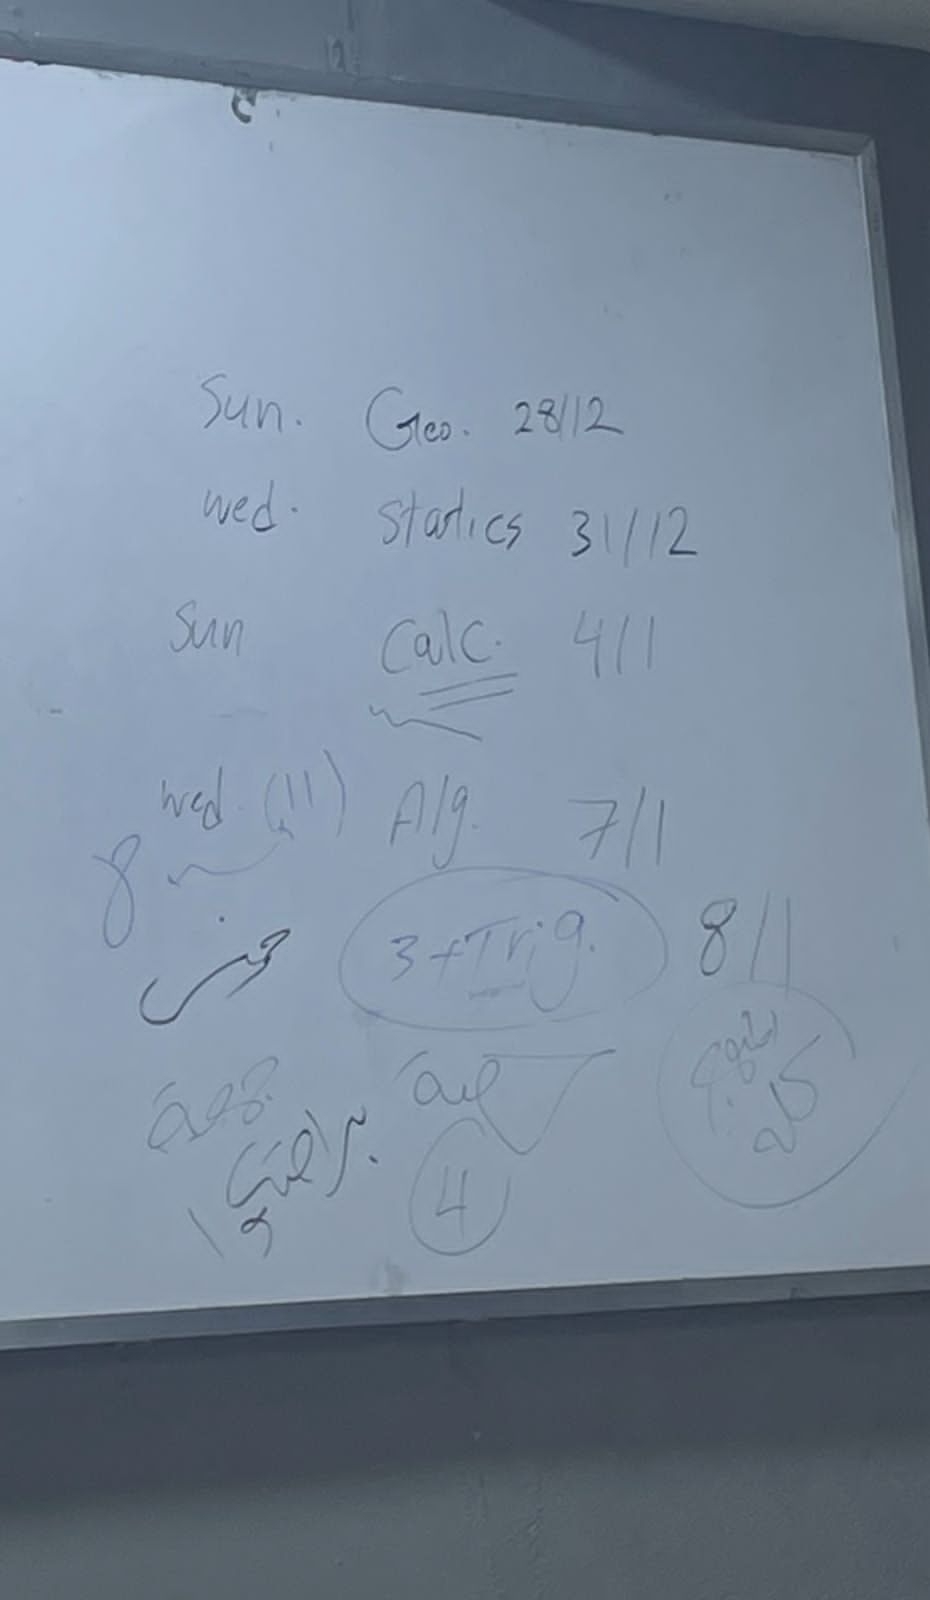 Sun. Geo. 28/12
wed. Statics 31/12
Sun Calc. 4/1
wed. (11) Alg. 7/1
8
خميس 3+Trig. 8/1
جمعة
4